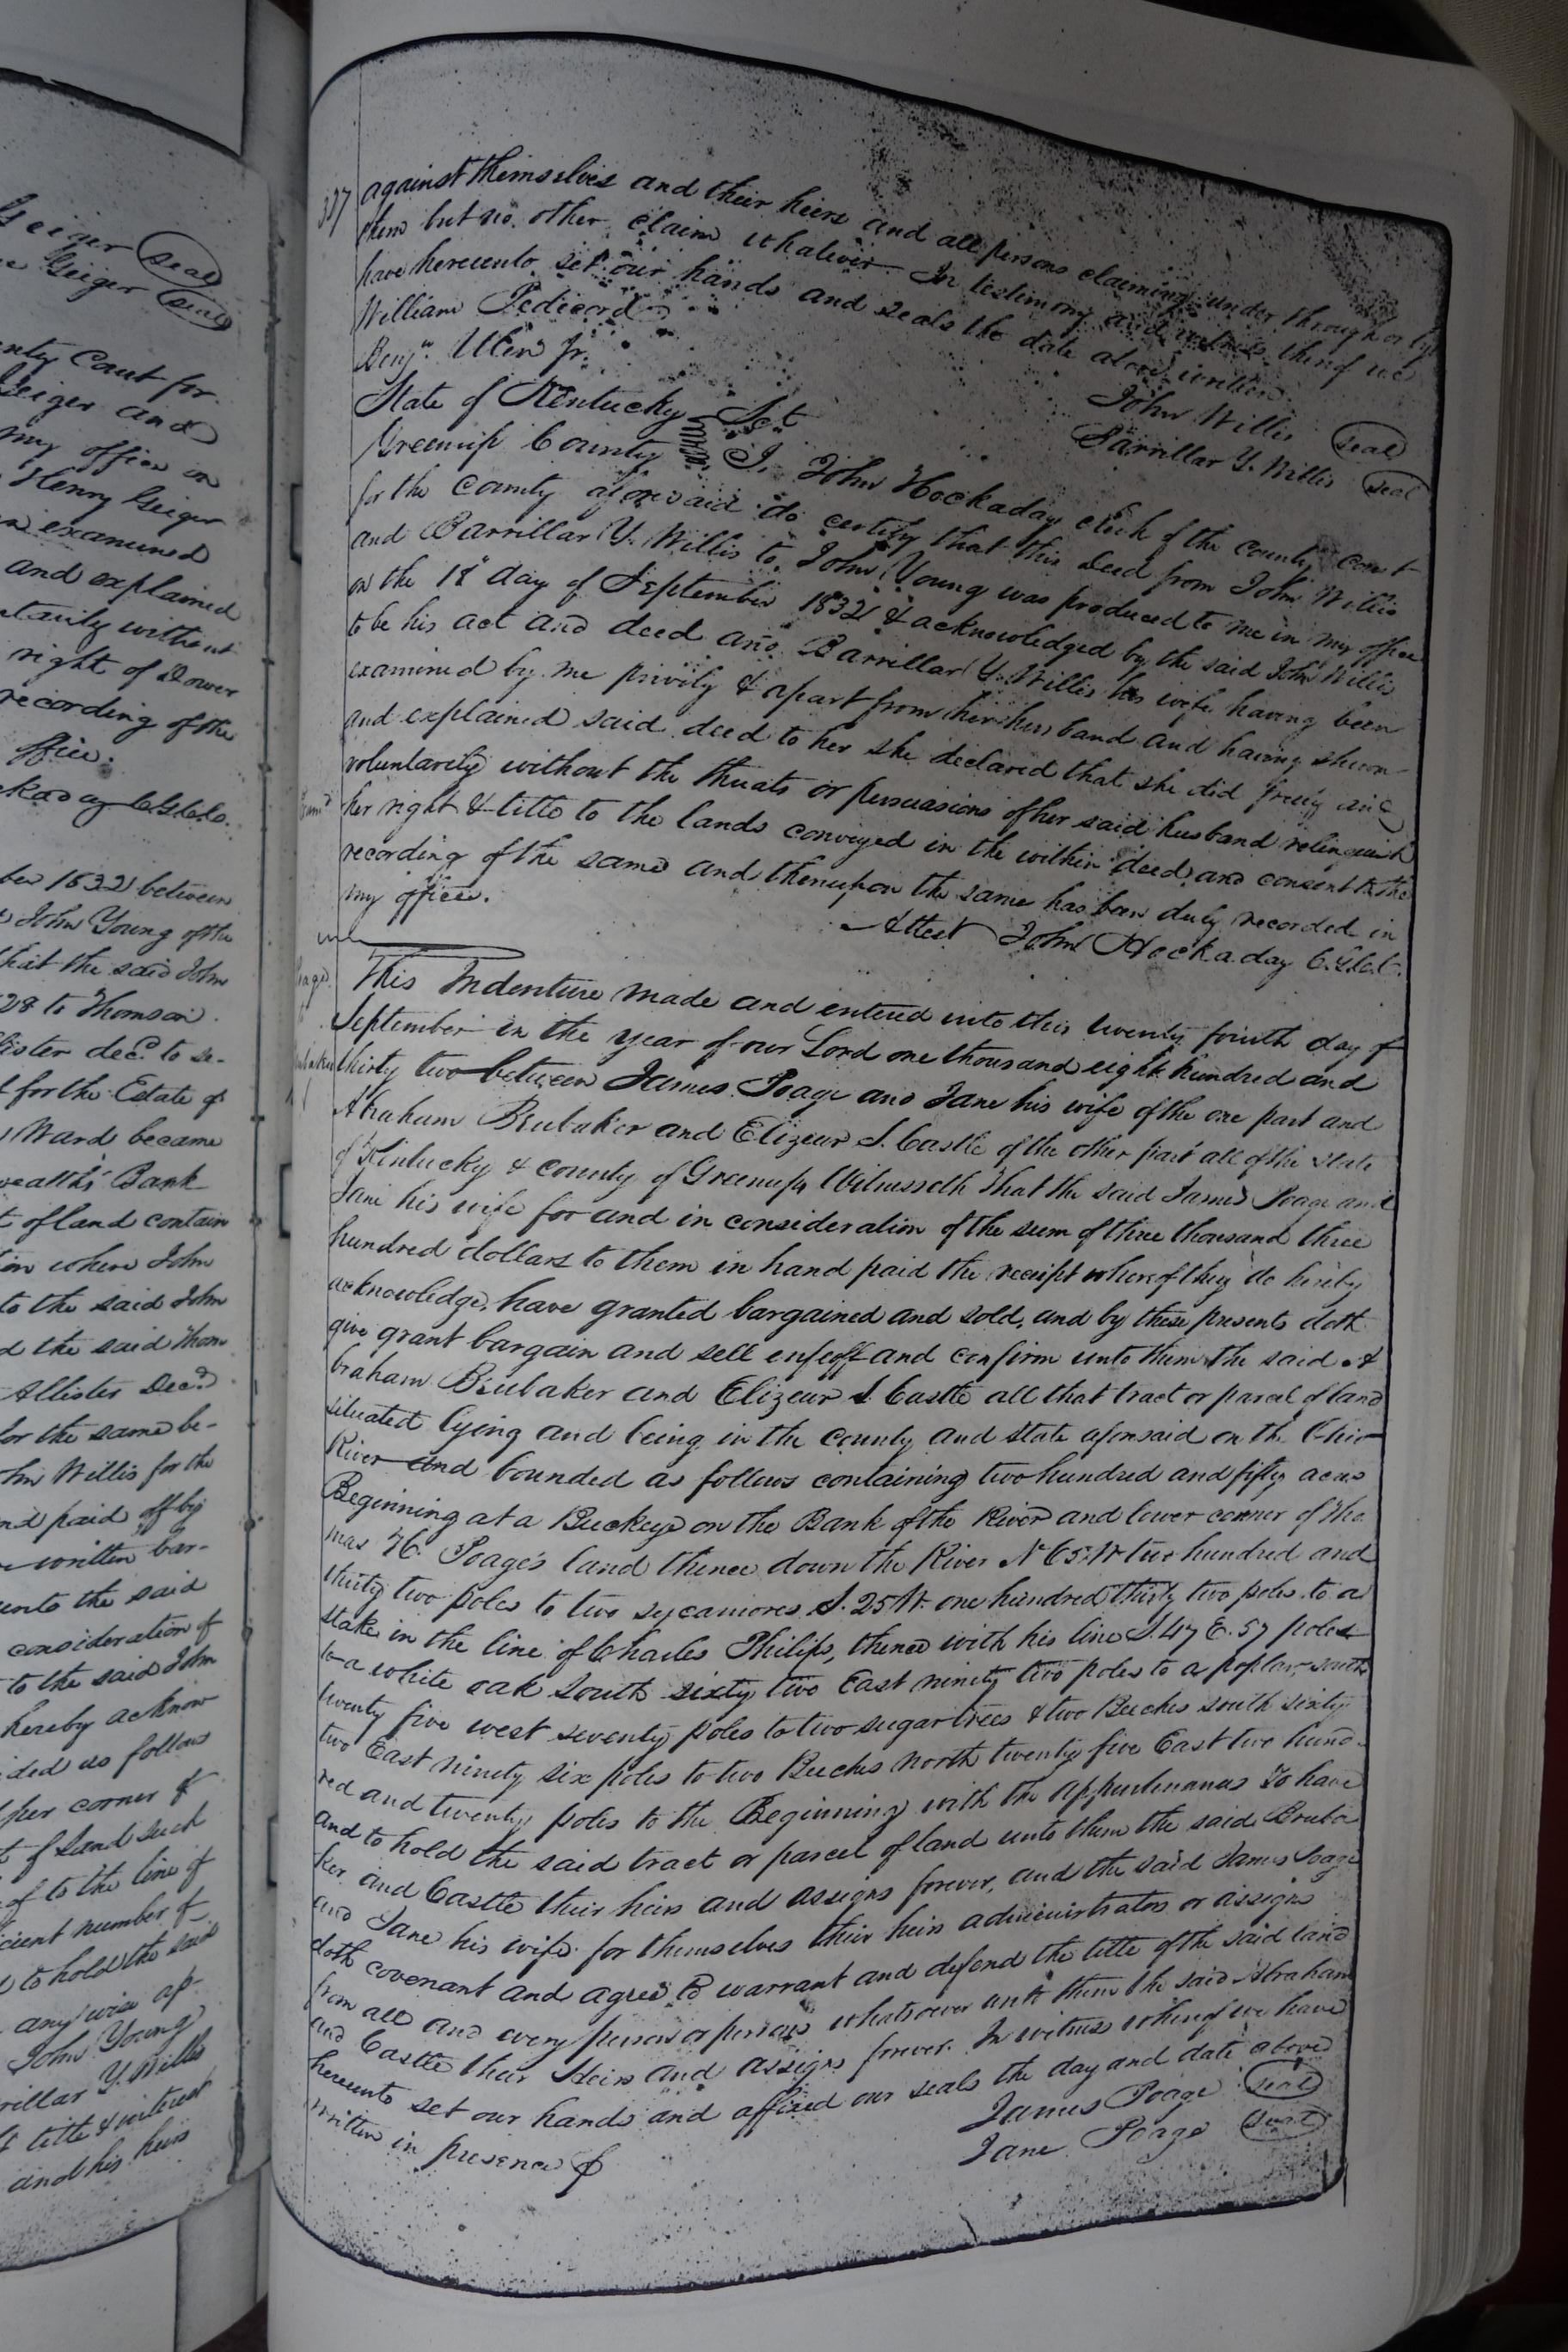 Geiger seal
Geiger seal
nty Court for
Geiger and
my office on
Henry Geiger
examined
and explained
ntarily without
right of Dower
recording of the
office.
ckaday C.G.C.C.
ber 1832 between
John Young of the
that the said John
28 to Thomson
lister decd. to se-
t for the Estate of
Ward became
wealth's Bank
t of land contain
on where John
to the said John
d the said Thom
Allister Decd.
for the same be-
hn Willis for the
nd paid off by
written bar-
unto the said
consideration of
to the said John
hereby acknow
ded as follows
per corner of
t of Land such
of to the line of
cient number of
to hold the said
any wise ap-
John Young
rillar Y. Willis
t title & interest
and his heirs
337 against themselves and their heirs and all persons claiming under through or by
them but no other claim whatever In testimony and witness thereof we
have hereunto set our hands and seals the date above written
William Pedicord John Willis seal
Benjn. Ulen Jr. Barrillar Y. Willis seal
State of Kentucky Sct
Greenup County I. John Hockaday clerk of the county court
for the county aforesaid do certify that this Deed from John Willis
and Barrillar Y. Willis to John Young was produced to me in my office
on the 18th day of September 1832 & acknowledged by the said John Willis
to be his act and deed and Barrillar Y. Willis his wife having been
examined by me privily & apart from her husband and having shewn
and explained said deed to her she declared that she did freely and
voluntarily without the threats or persuasions of her said husband relinquish
her right & title to the lands conveyed in the within deed and consent to the
recording of the same and thereupon the same has been duly recorded in
my office.
Attest John Hockaday C.G.C.C.
This Indenture made and entered into this twenty fourth day of
September in the year of our Lord one thousand eight hundred and
thirty two between James Poage and Jane his wife of the one part and
Abraham Brubaker and Elizeur S. Castle of the other part all of the state
of Kentucky & county of Greenup Witnesseth that the said James Poage and
Jane his wife for and in consideration of the sum of three thousand three
hundred dollars to them in hand paid the receipt whereof they do hereby
acknowledge, have granted bargained and sold, and by these presents doth
give grant bargain and sell enfeoff and confirm unto them the said A
braham Brubaker and Elizeur S. Castle all that tract or parcel of land
situated lying and being in the county and state aforesaid on the Ohio
River and bounded as follows containing two hundred and fifty acres
Beginning at a Buckeye on the Bank of the River and lower corner of Tho
mas H. Poage's land thence down the River N 65 W two hundred and
thirty two poles to two sycamores S. 25 W. one hundred thirty two poles to a
stake in the line of Charles Philips, thence with his line S. 47 E. 57 poles
to a white oak South sixty two East ninety two poles to a poplar, south
twenty five west seventy poles to two sugartrees & two Beeches south sixty
two East ninety six poles to two Beeches north twenty five East two hund-
red and twenty poles to the Beginning with the appurtenances To have
and to hold the said tract or parcel of land unto them the said Bruba
ker and Castle their heirs and assigns forever, and the said James Poage
and Jane his wife for themselves their heirs administrators or assigns
doth covenant and agree to warrant and defend the title of the said land
from all and every person or persons whatsoever unto them the said Abraham
and Castle their Heirs and assigns forever. In witness whereof we have
hereunto set our hands and affixed our seals the day and date above
written in presence of James Poage seal
Jane Poage seal